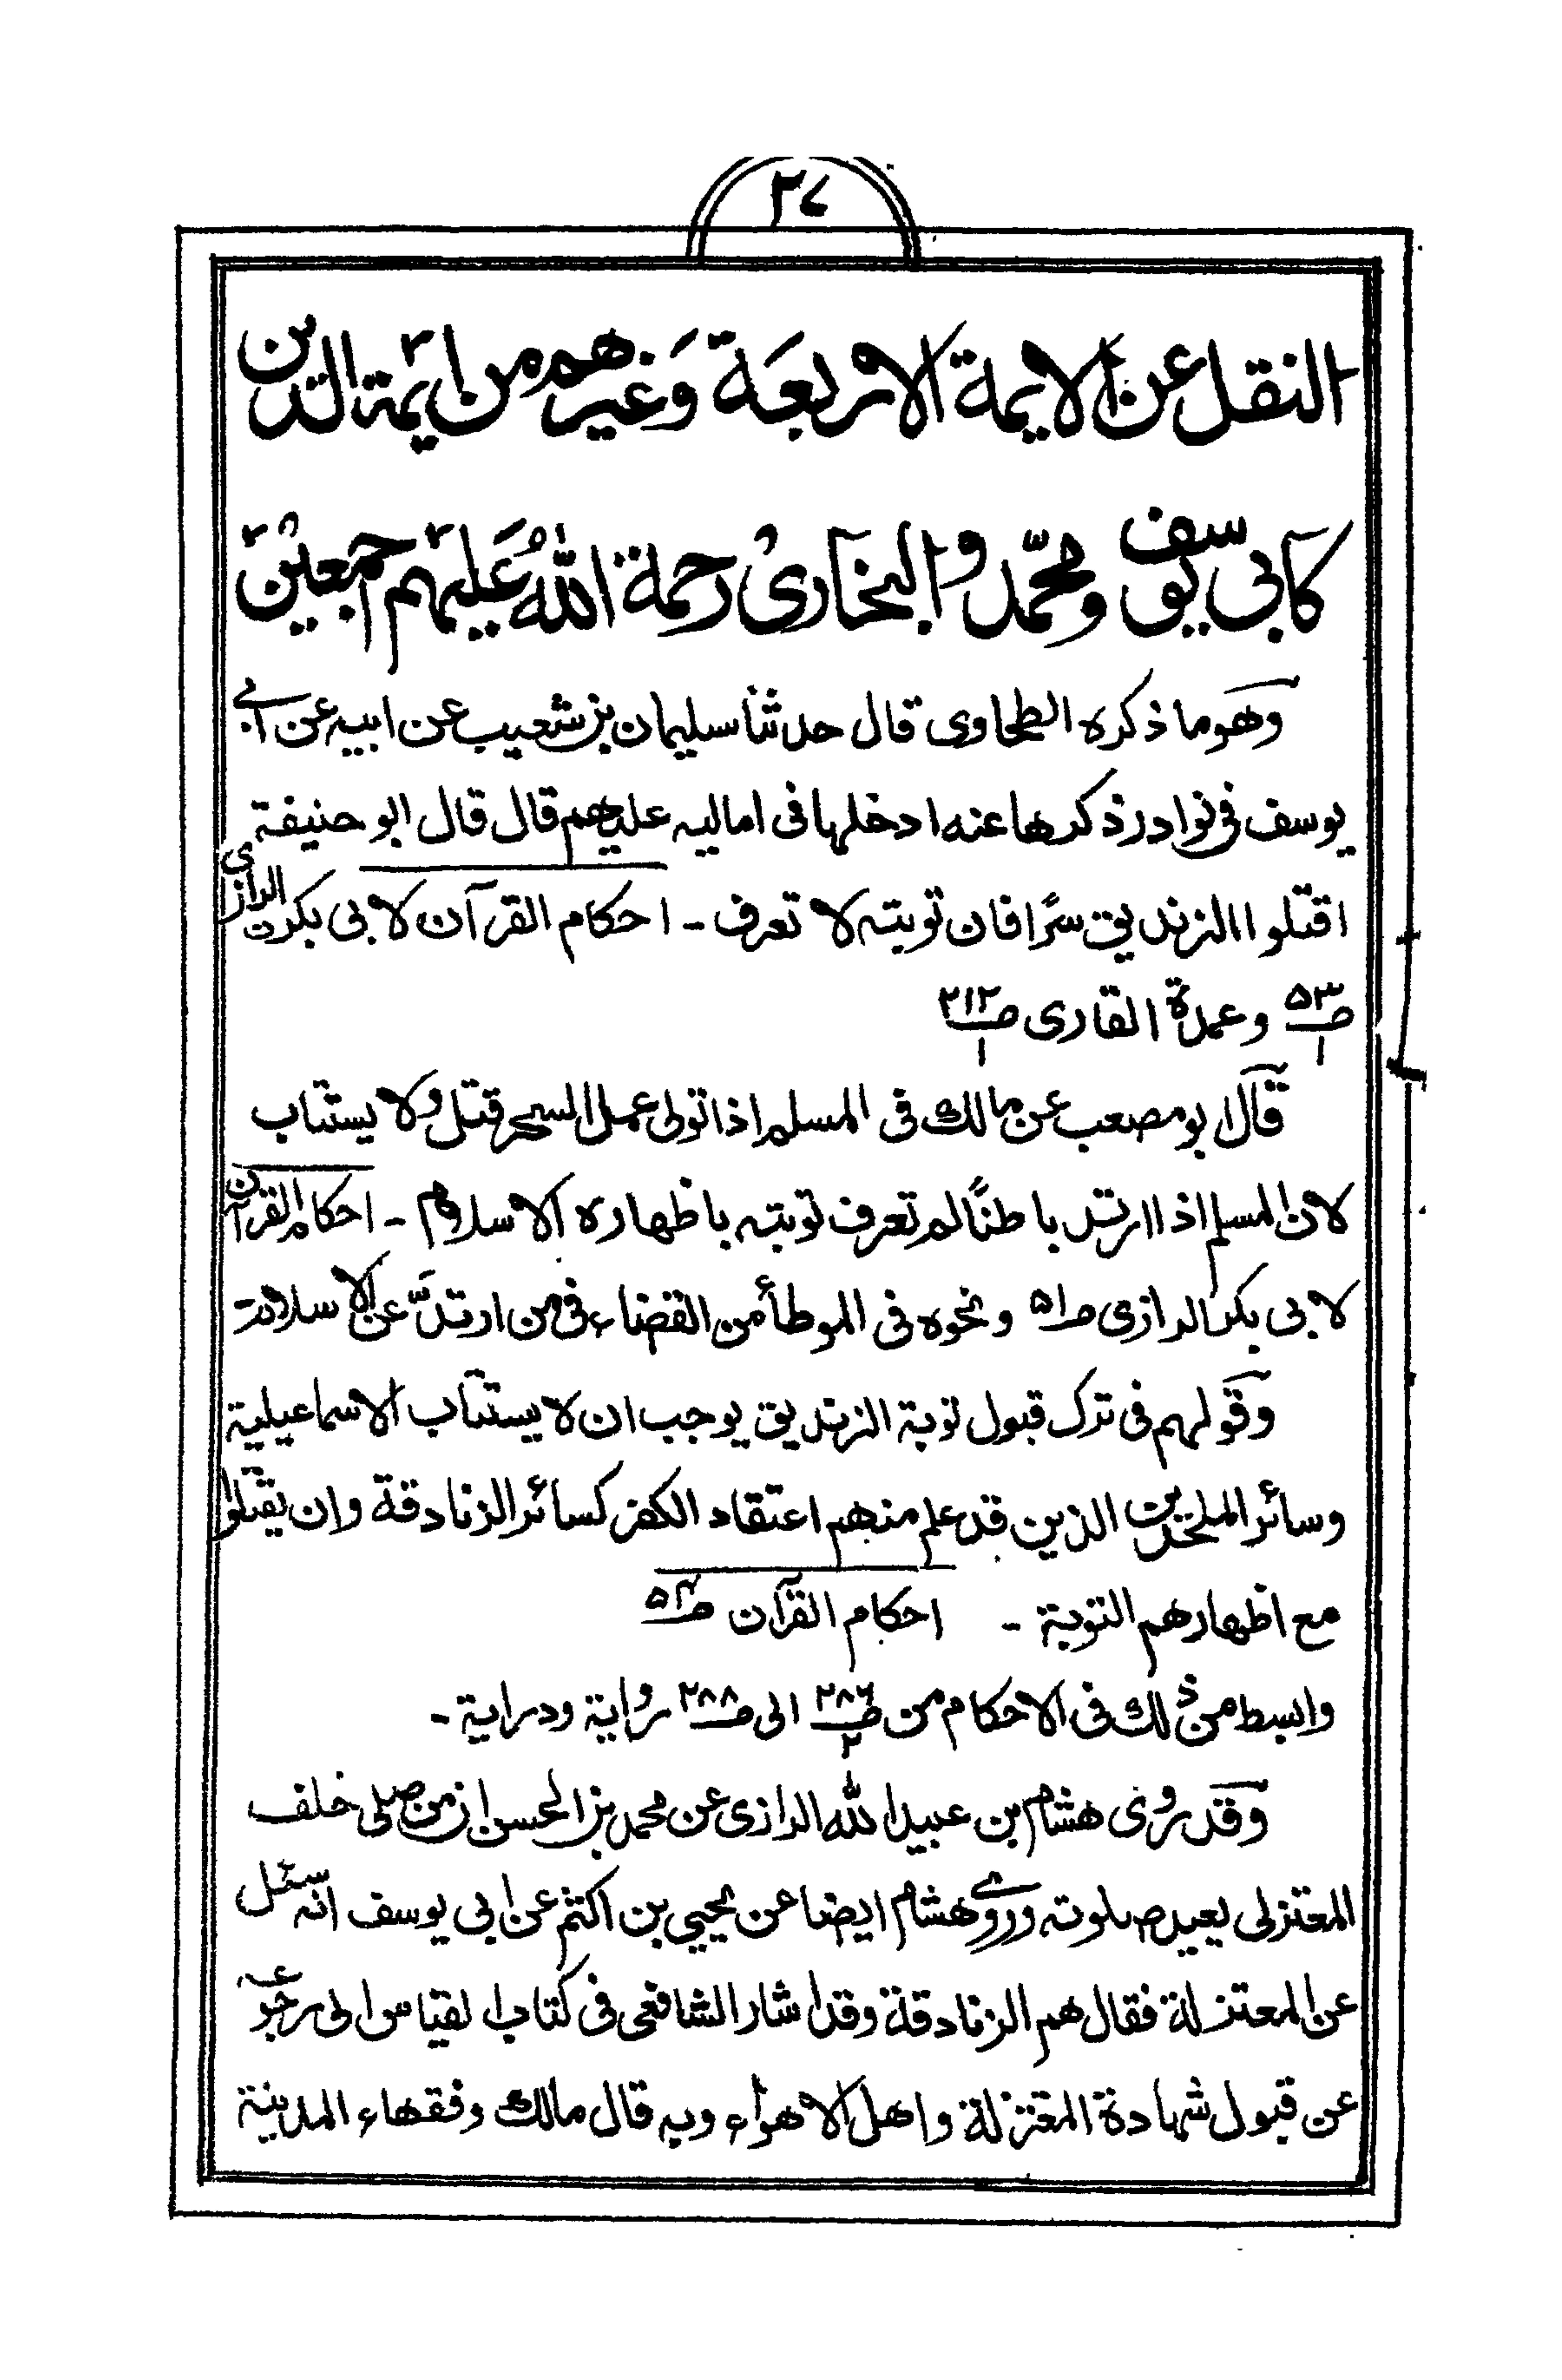 ٢٧
النقل عن الايمة الاربعة وغيرهم من ايمة الدين
كابي يوسف ومحمد والبخاري رحمة الله عليهم اجمعين
وهو ما ذكره الطحاوى قال حدثنا سليمان بن شعيب عن ابيه عن ابى
يوسف فى نوادر ذكرها عنه ادخلها فى اماليه عليهم قال قال ابو حنيفة
اقتلوا الزنديق سرًّا فان توبته لا تعرف - احكام القرآن لابى بكر الرازى
صـ٥٣ وعمدة القارى صـ٢١٢
١ ١
قال ابو مصعب عن مالك فى المسلم اذا تولى عمل السحر قتل ولا يستتاب
لان المسلم اذا ارتد باطنًا لم تعرف توبته باظهاره الاسلام - احكام القرآن
لابى بكر الرازى صـ٥١ ونحوه فى الموطأ من القضاء فى من ارتدَّ عن الاسلام
وقولهم فى ترك قبول توبة الزنديق يوجب ان لا يستتاب الاسماعيلية
وسائر الملحدين الذين قد علم منهم اعتقاد الكفر كسائر الزنادقة وان يقتلوا
مع اظهارهم التوبة - احكام القرآن صـ
وابسط من ذلك فى الاحكام من صـ٢٨٦ الى صـ٢٨٨ رواية ودراية -
٢
وقد روى هشام بن عبيد الله الرازى عن محمد بن الحسن ان من صلى خلف
المعتزلى يعيد صلوته وروى هشام ايضا عن يحيى بن اكثم عن ابى يوسف انه سئل
عن المعتزلة فقال هم الزنادقة وقد اشار الشافعى فى كتاب القياس الى رجوعه
عن قبول شهادة المعتزلة واهل الاهواء وبه قال مالك وفقهاء المدينة